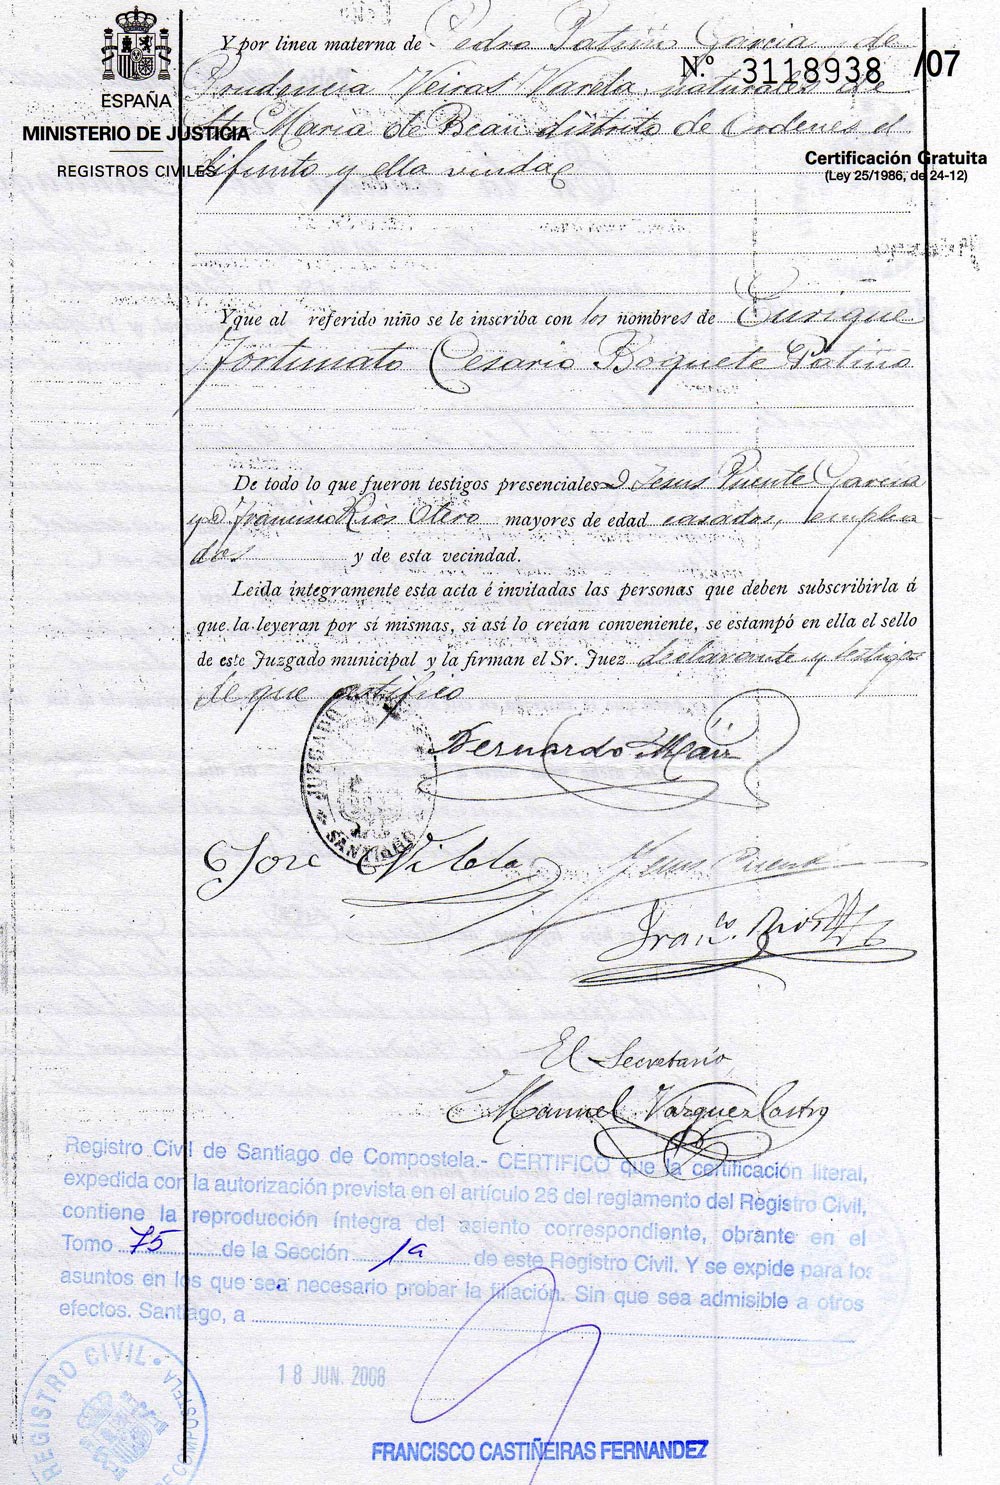 ESPAÑA
MINISTERIO DE JUSTICIA
REGISTROS CIVILES
N.º 3118938 /07
Certificación Gratuita
(Ley 25/1986, de 24-12)
Y por linea materna de Pedro Patiño Garcia, de
Prudencia Veiras Varela, naturales de
Sta Maria de Bean distrito de Ordenes el
difunto y ella viuda
Y que al referido niño se le inscriba con los nombres de Enrique
Fortunato Cesario Boquete Patiño
De todo lo que fueron testigos presenciales D Jesus Puente Garcia
y D. Francisco Rios Otero mayores de edad casados, emplea
dos y de esta vecindad.
Leida íntegramente esta acta é invitadas las personas que deben subscribirla á
que la leyeran por sí mismas, si así lo creían conveniente, se estampó en ella el sello
de este Juzgado municipal y la firman el Sr. Juez declarante y testigos
de que certifico
JUZGADO
SANTIAGO
Bernardo
José Vilela
Jesus Puente
Franco. Rios
El Secretario
Manuel Vazquez Castro
Registro Civil de Santiago de Compostela.- CERTIFICO que la certificación literal,
expedida con la autorización prevista en el artículo 26 del reglamento del Registro Civil,
contiene la reproducción íntegra del asiento correspondiente, obrante en el
Tomo 75 de la Sección 1ª de este Registro Civil. Y se expide para los
asuntos en los que sea necesario probar la filiación. Sin que sea admisible a otros
efectos. Santiago, a
18 JUN. 2008
REGISTRO CIVIL
DE COMPOSTELA
FRANCISCO CASTIÑEIRAS FERNANDEZ